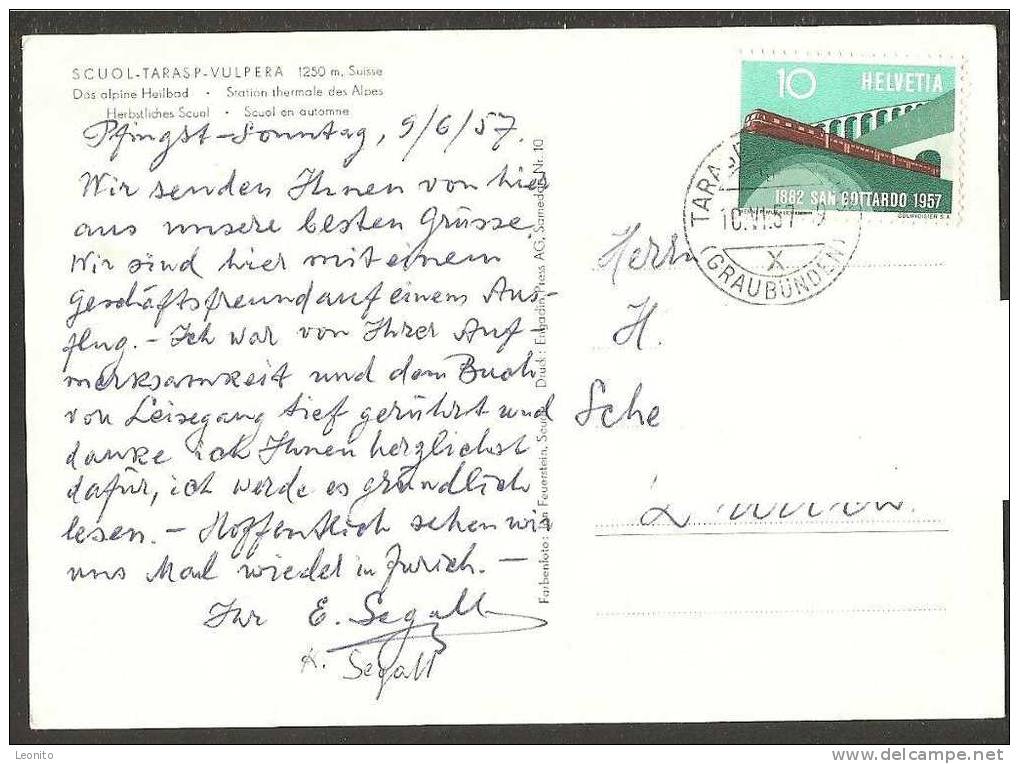 SCUOL-TARASP-VULPERA 1250 m, Suisse
Das alpine Heilbad • Station thermale des Alpes
Herbstliches Scuol • Scuol en automne
Pfingst-Sonntag, 9/6/57.
Wir senden Ihnen von hier
aus unsere besten Grüsse.
Wir sind hier mit einem
Geschäftsfreund auf einem Aus-
flug. – Ich war von Ihrer Auf-
merksamkeit und dem Buch
von Leisegang tief gerührt und
danke ich Ihnen herzlichst
dafür, ich werde es gründlich
lesen. – Hoffentlich sehen wir
uns Mal wieder in Zürich. –
Ihr E. Segall
K. Segall
Farbenfoto: Feuerstein, Scuol Druck: Engadin Press AG, Samedan Nr. 10
10 HELVETIA
1882 SAN GOTTARDO 1957
COURVOISIER S.A.
TARA
10.VI.57
X
(GRAUBÜNDEN)
Herrn
H.
Sche
Leonito
www.delcampe.net